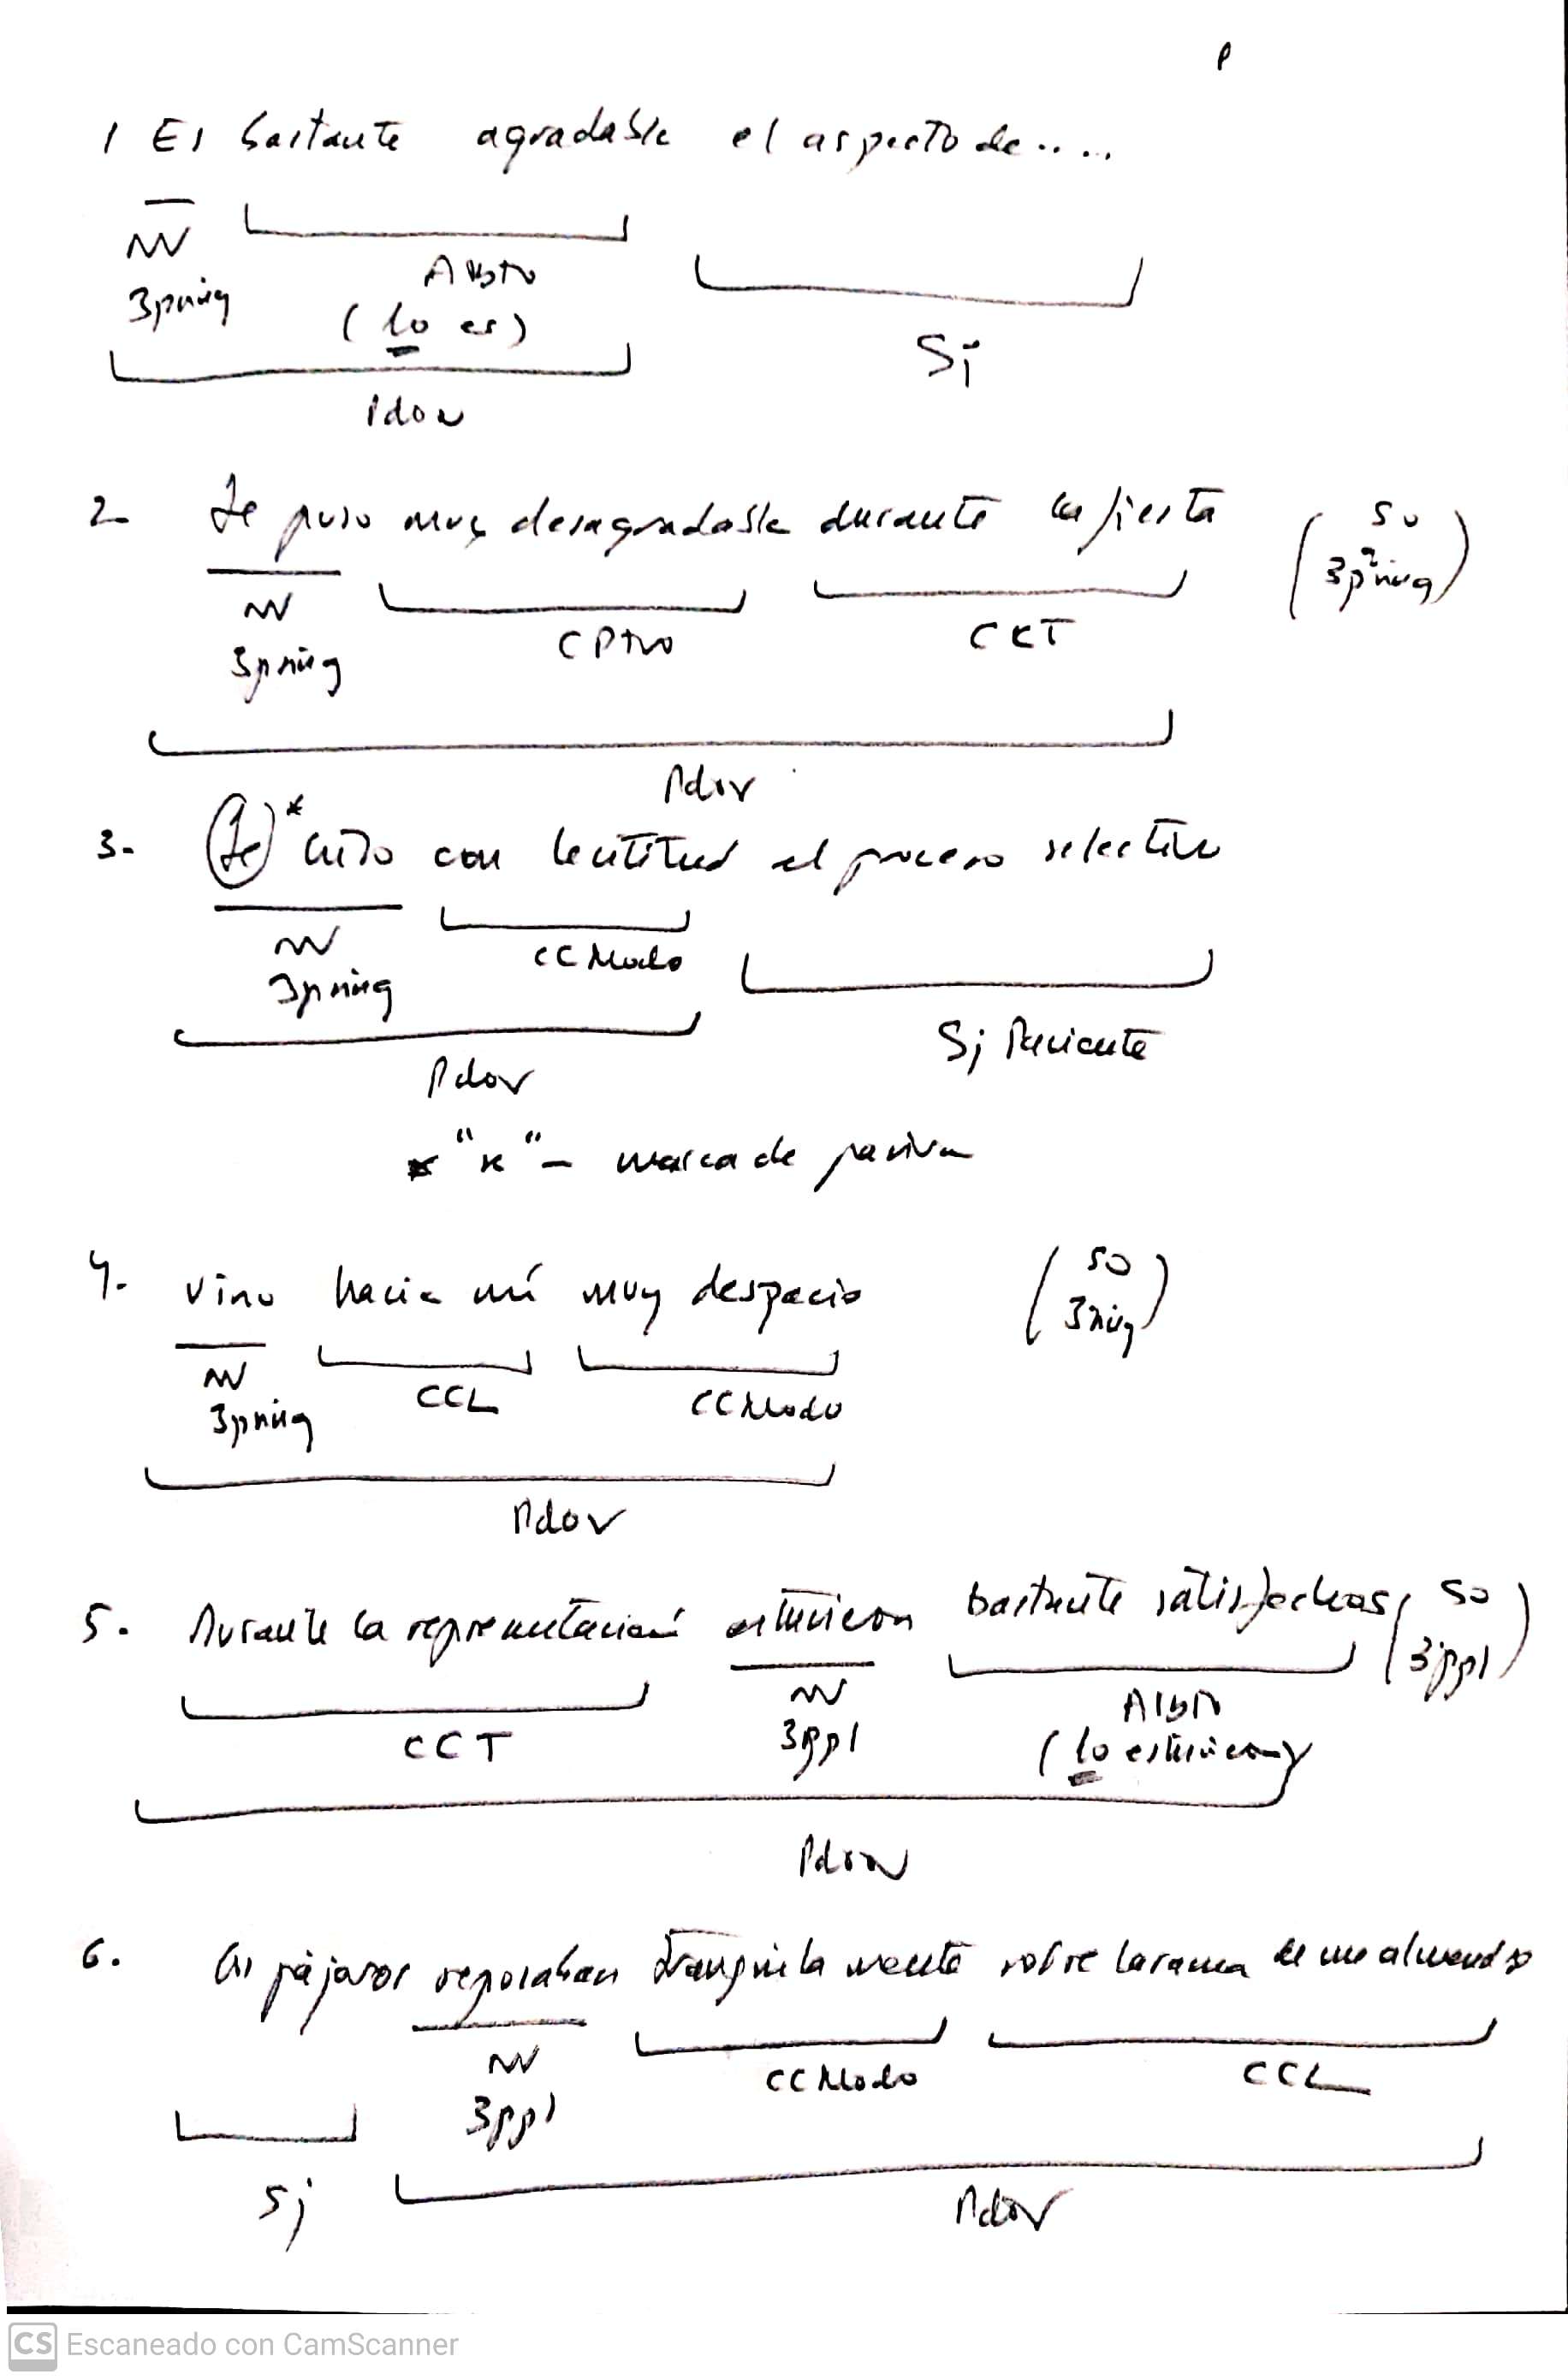 P
1 Es bastante agradable el aspecto de....
NV
Atbto
3psing
(lo es)
Sj
Pdo N
2- Se puso muy desagradable durante la fiesta (SO
3psing)
NV
CPtvo
CCT
3psing
Pdo V
3- (Se)* hizo con lentitud el proceso selectivo
NV
CC Modo
3psing
Sj Paciente
Pdo V
* "se" - marca de pasiva
4- Vino hacia mí muy despacio (SO
3sing)
NV
CCL
CCModo
3psing
Pdo V
5. Durante la representación estuvieron bastante satisfechas (SO
3ppl)
NV
CCT
3ppl
Atbto
(lo estuvieron)
Pdo N
6. Los pájaros reposaban tranquilamente sobre la rama de un almendro
NV
CCModo
CCL
3ppl
Sj
Pdo V
CS Escaneado con CamScanner